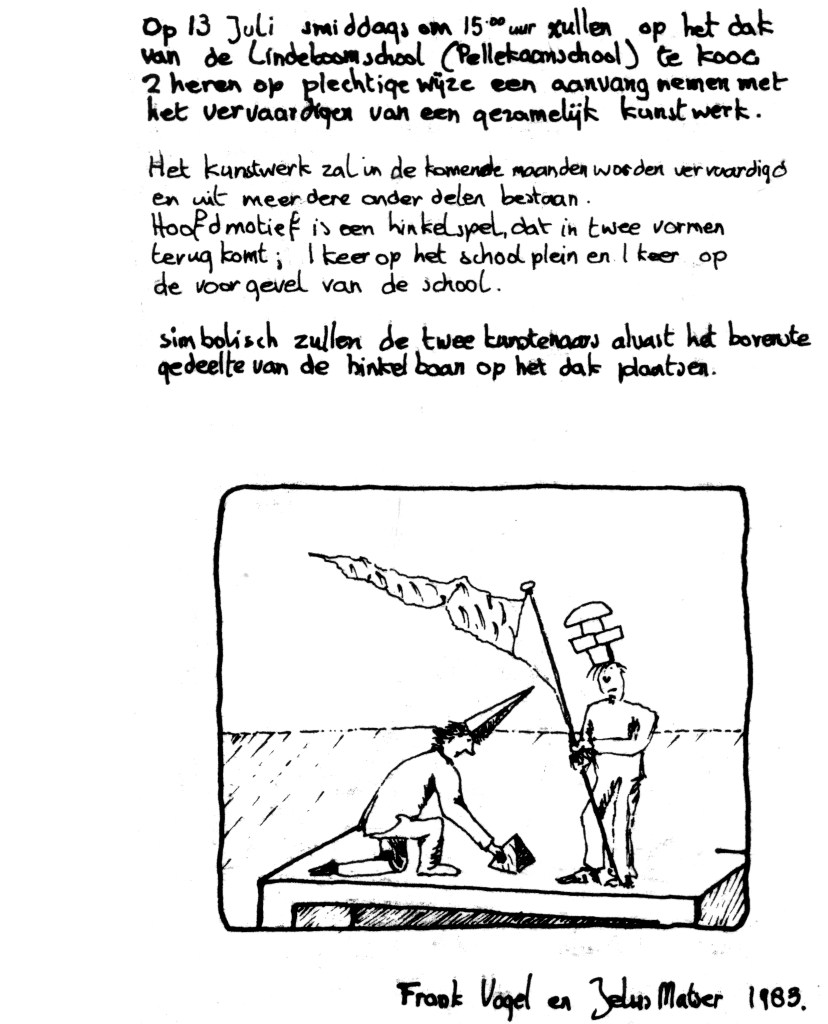 Op 13 Juli smiddags om 15.00 uur zullen op het dak
van de Lindeboomschool (Pellekaanschool) te KOOG
2 heren op plechtige wijze een aanvang nemen met
het vervaardigen van een gezamelijk kunstwerk.
Het kunstwerk zal in de komende maanden worden vervaardigd
en uit meerdere onderdelen bestaan.
Hoofdmotief is een hinkelspel, dat in twee vormen
terug komt; 1 keer op het schoolplein en 1 keer op
de voorgevel van de school.
simbolisch zullen de twee kunstenaars alvast het bovenste
gedeelte van de hinkelbaan op het dak plaatsen.
Frank Vogel en Matser 1983.